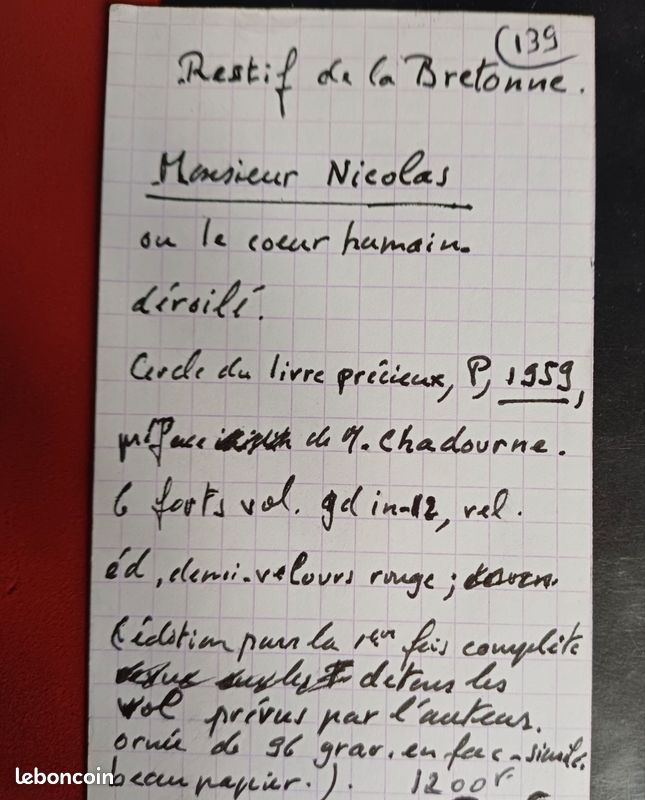 139
Restif de la Bretonne.
Monsieur Nicolas
ou le coeur humain.
dévoilé.
Cercle du livre précieux, P, 1959,
préface de M. Chadourne.
6 forts vol. gd in-12, rel.
éd, demi-velours rouge;
(édition pour la 1ère fois complète
de tous les
vol prévus par l'auteur.
ornée de 96 grav. en fac-simile.
beau papier.). 1200F
leboncoin